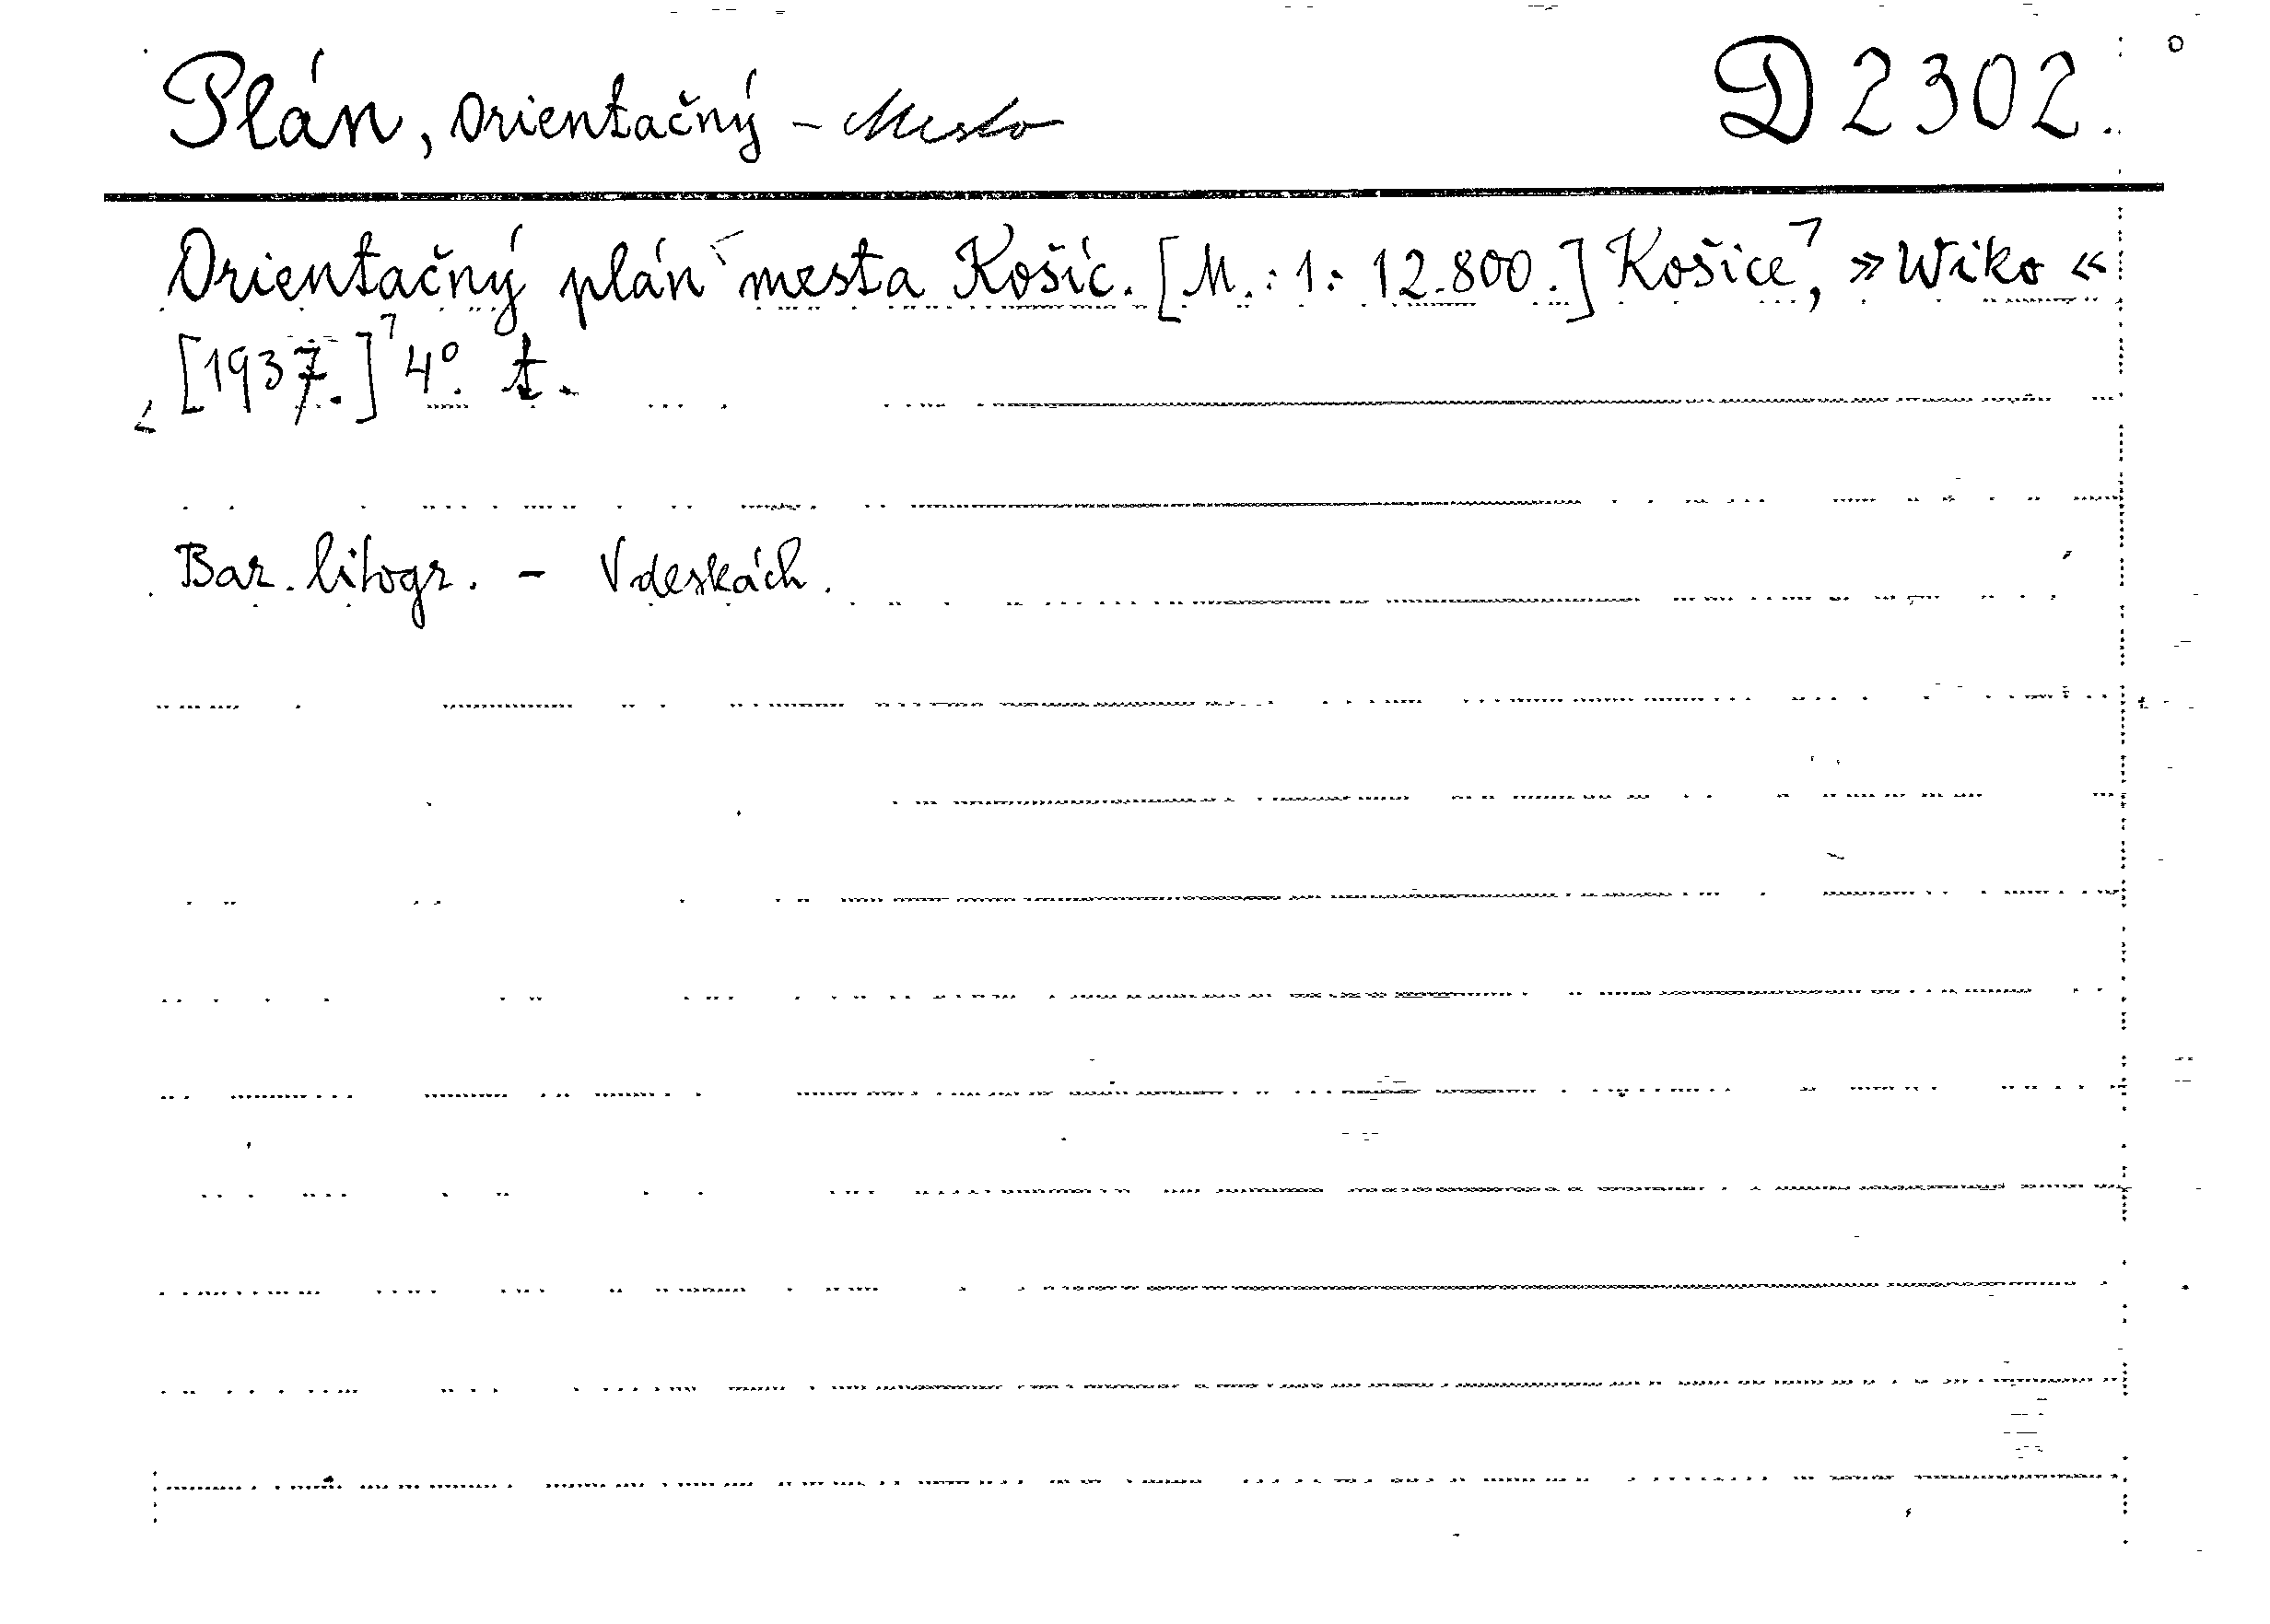 Plán, orientačný - Mesto D 2302.
Orientačný plán mesta Košíc. [M.: 1: 12.800.] Košice, »Wiko«
[1937.] 4°. t.
Bar. litogr. - V deskách.